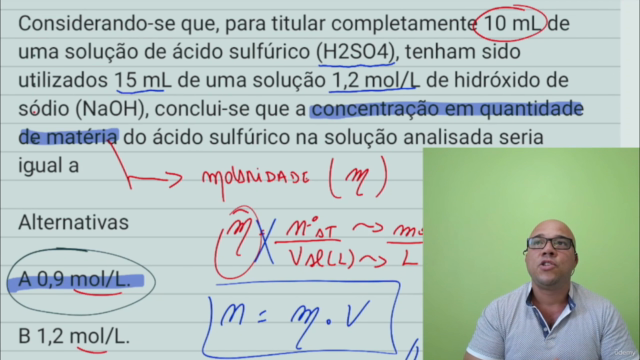 Considerando-se que, para titular completamente 10 mL de
uma solução de ácido sulfúrico (H2SO4), tenham sido
utilizados 15 mL de uma solução 1,2 mol/L de hidróxido de
sódio (NaOH), conclui-se que a concentração em quantidade
de matéria do ácido sulfúrico na solução analisada seria
igual a
MOLARIDADE (η)
Alternativas
η = nº ST ~> mo
VSL(L) ~> L
A 0,9 mol/L.
n = η . V
B 1,2 mol/L.